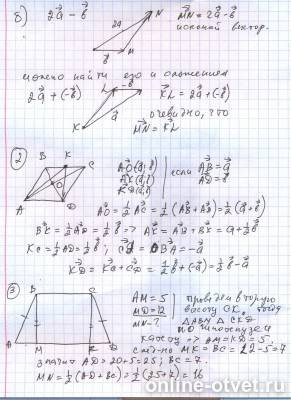 б) 2a⃗ - b⃗
2a⃗ N
b⃗ M
MN⃗ = 2a⃗ - b⃗
искомый вектор.
можно найти его и сложением
2a⃗ + (-b⃗)
L -b⃗
K a⃗
KL⃗ = 2a⃗ + (-b⃗)
очевидно, что
MN⃗ = KL⃗
②
B K C
O
A D
AO⃗(a⃗; b⃗)
AK⃗(a⃗; b⃗)
KD⃗(a⃗; b⃗)
если AB⃗ = a⃗
AD⃗ = b⃗
AO⃗ = ½ AC⃗ = ½ (AB⃗ + AD⃗) = ½ (a⃗ + b⃗)
BK⃗ = ½ AD⃗ = ½ b⃗ ⇒ AK⃗ = AB⃗ + BK⃗ = a⃗ + ½ b⃗
KC⃗ = ½ AD⃗ = ½ b⃗; CD⃗ = BA⃗ = -a⃗
KD⃗ = KC⃗ + CD⃗ = ½ b⃗ + (-a⃗) = ½ b⃗ - a⃗
③
B C
A M K D
AM = 5
MD = 12
MN - ?
проведем вторую
высоту CK, тогда
△ABM △CKD
по гипотенузе и
катету ⇒ AM = KD = 5.
MK = BC = 12 - 5 = 7
значит AD = 20 + 5 = 25; BC = 7.
MN = ½ (AD + BC) = ½ (25 + 7) = 16
online-otvet.ru